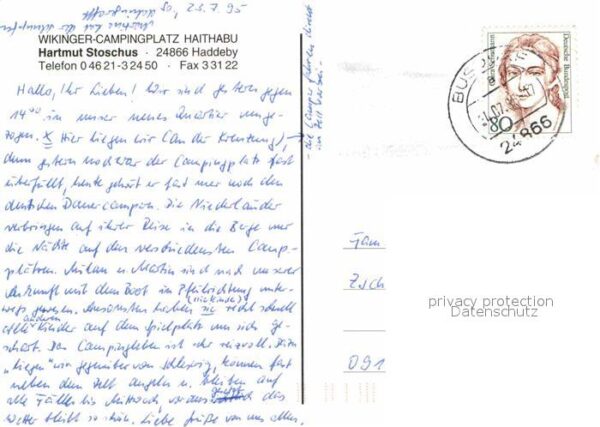 So, 23.7.95
WIKINGER-CAMPINGPLATZ HAITHABU
Hartmut Stoschus · 24866 Haddeby
Telefon 0 46 21-3 24 50 · Fax 3 31 22
Hallo, Ihr Lieben! Wir sind gestern gegen
14 00 in unser neues Quartier umge-
zogen. X Hier liegen wir (An der Kreuzung),
denn gestern noch war der Campingplatz fast
überfüllt, heute gehört er fast nur noch den
deutschen Dauercampern. Die Niederländer
verbringen auf ihrer Reise in die Berge nur
die Nächte auf den verschiedensten Camp-
plätzen. Milan u Martin sind nach unserer
Ankunft mit dem Boot in Pfeilrichtung unter-
wegs gewesen. Ansonsten haben sie recht schnell
(die Kinder)
alle anderen Kinder auf dem Spielplatz um sich ge-
schart. Das Campingleben ist sehr reizvoll. Wir
"liegen" gegenüber von Schleswig, können fast
neben dem Zelt angeln u. bleiben auf
alle Fälle bis Mittwoch, vorausgesetzt das
Wetter bleibt so schön. Liebe Grüße von uns allen,
die Camper fahren direkt
am Zelt vorbei
Deutsche Bundespost
80
BUSDORF
24866
Fam
Zsch
091
privacy protection
Datenschutz